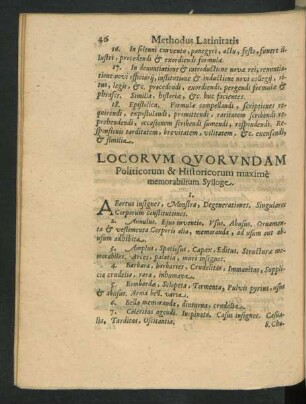 46 Methodus Latinitatis
16. In solenni conventu, panegyri, actu, festo, funere il-
lustri, procedendi & exordiendi formula.
17. In denuntiatione & introductione novæ rei, renuntia-
tione novi officiarii, institutione & inductione novi collegii, ri-
tus, legis, &c. procedendi, exordiendi, pergendi formulæ &
phrases. Similia, historiæ, &c. huc facientes.
18. Epistolica. Formulæ compellandi, scriptiones re-
quirendi, expostulandi, promittendi; raritatem scribendi re-
prehendendi, occasionem scribendi sumendi, respondendi. Re-
sponsionis tarditatem, brevitatem, vilitatem, &c. excusandi,
& similia.
LOCORVM QVORVNDAM
Politicorum & Historicorum maximè
memorabilium Sylloge.
1.
Abortus insignes, Monstra, Degenerationes, Singulares
Corporum constitutiones.
2. Annulus. Ejus inventio, Usus, Abusus, Ornamen-
ta & vestimenta Corporis alia, memoranda, ad usum aut ab-
usum adhibita.
3. Amplus, Spatiosus, Capax, Editus. Structuræ me-
morabiles. Arces, palatia, muri insignes.
4. Barbara, barbaries, Crudelitas, Immanitas, Suppli-
cia crudelia, rara, inhumana.
5. Bombarda, Sclopeta, Tormenta, Pulvis pyrius, usus
& abusus. Arma bell. varia.
6. Bella memoranda, diuturna, crudelia.
7. Celeritas agendi. Inopinata, Casus insignes. Casua-
lia, Tarditas, Oscitantia.
8. Cha-